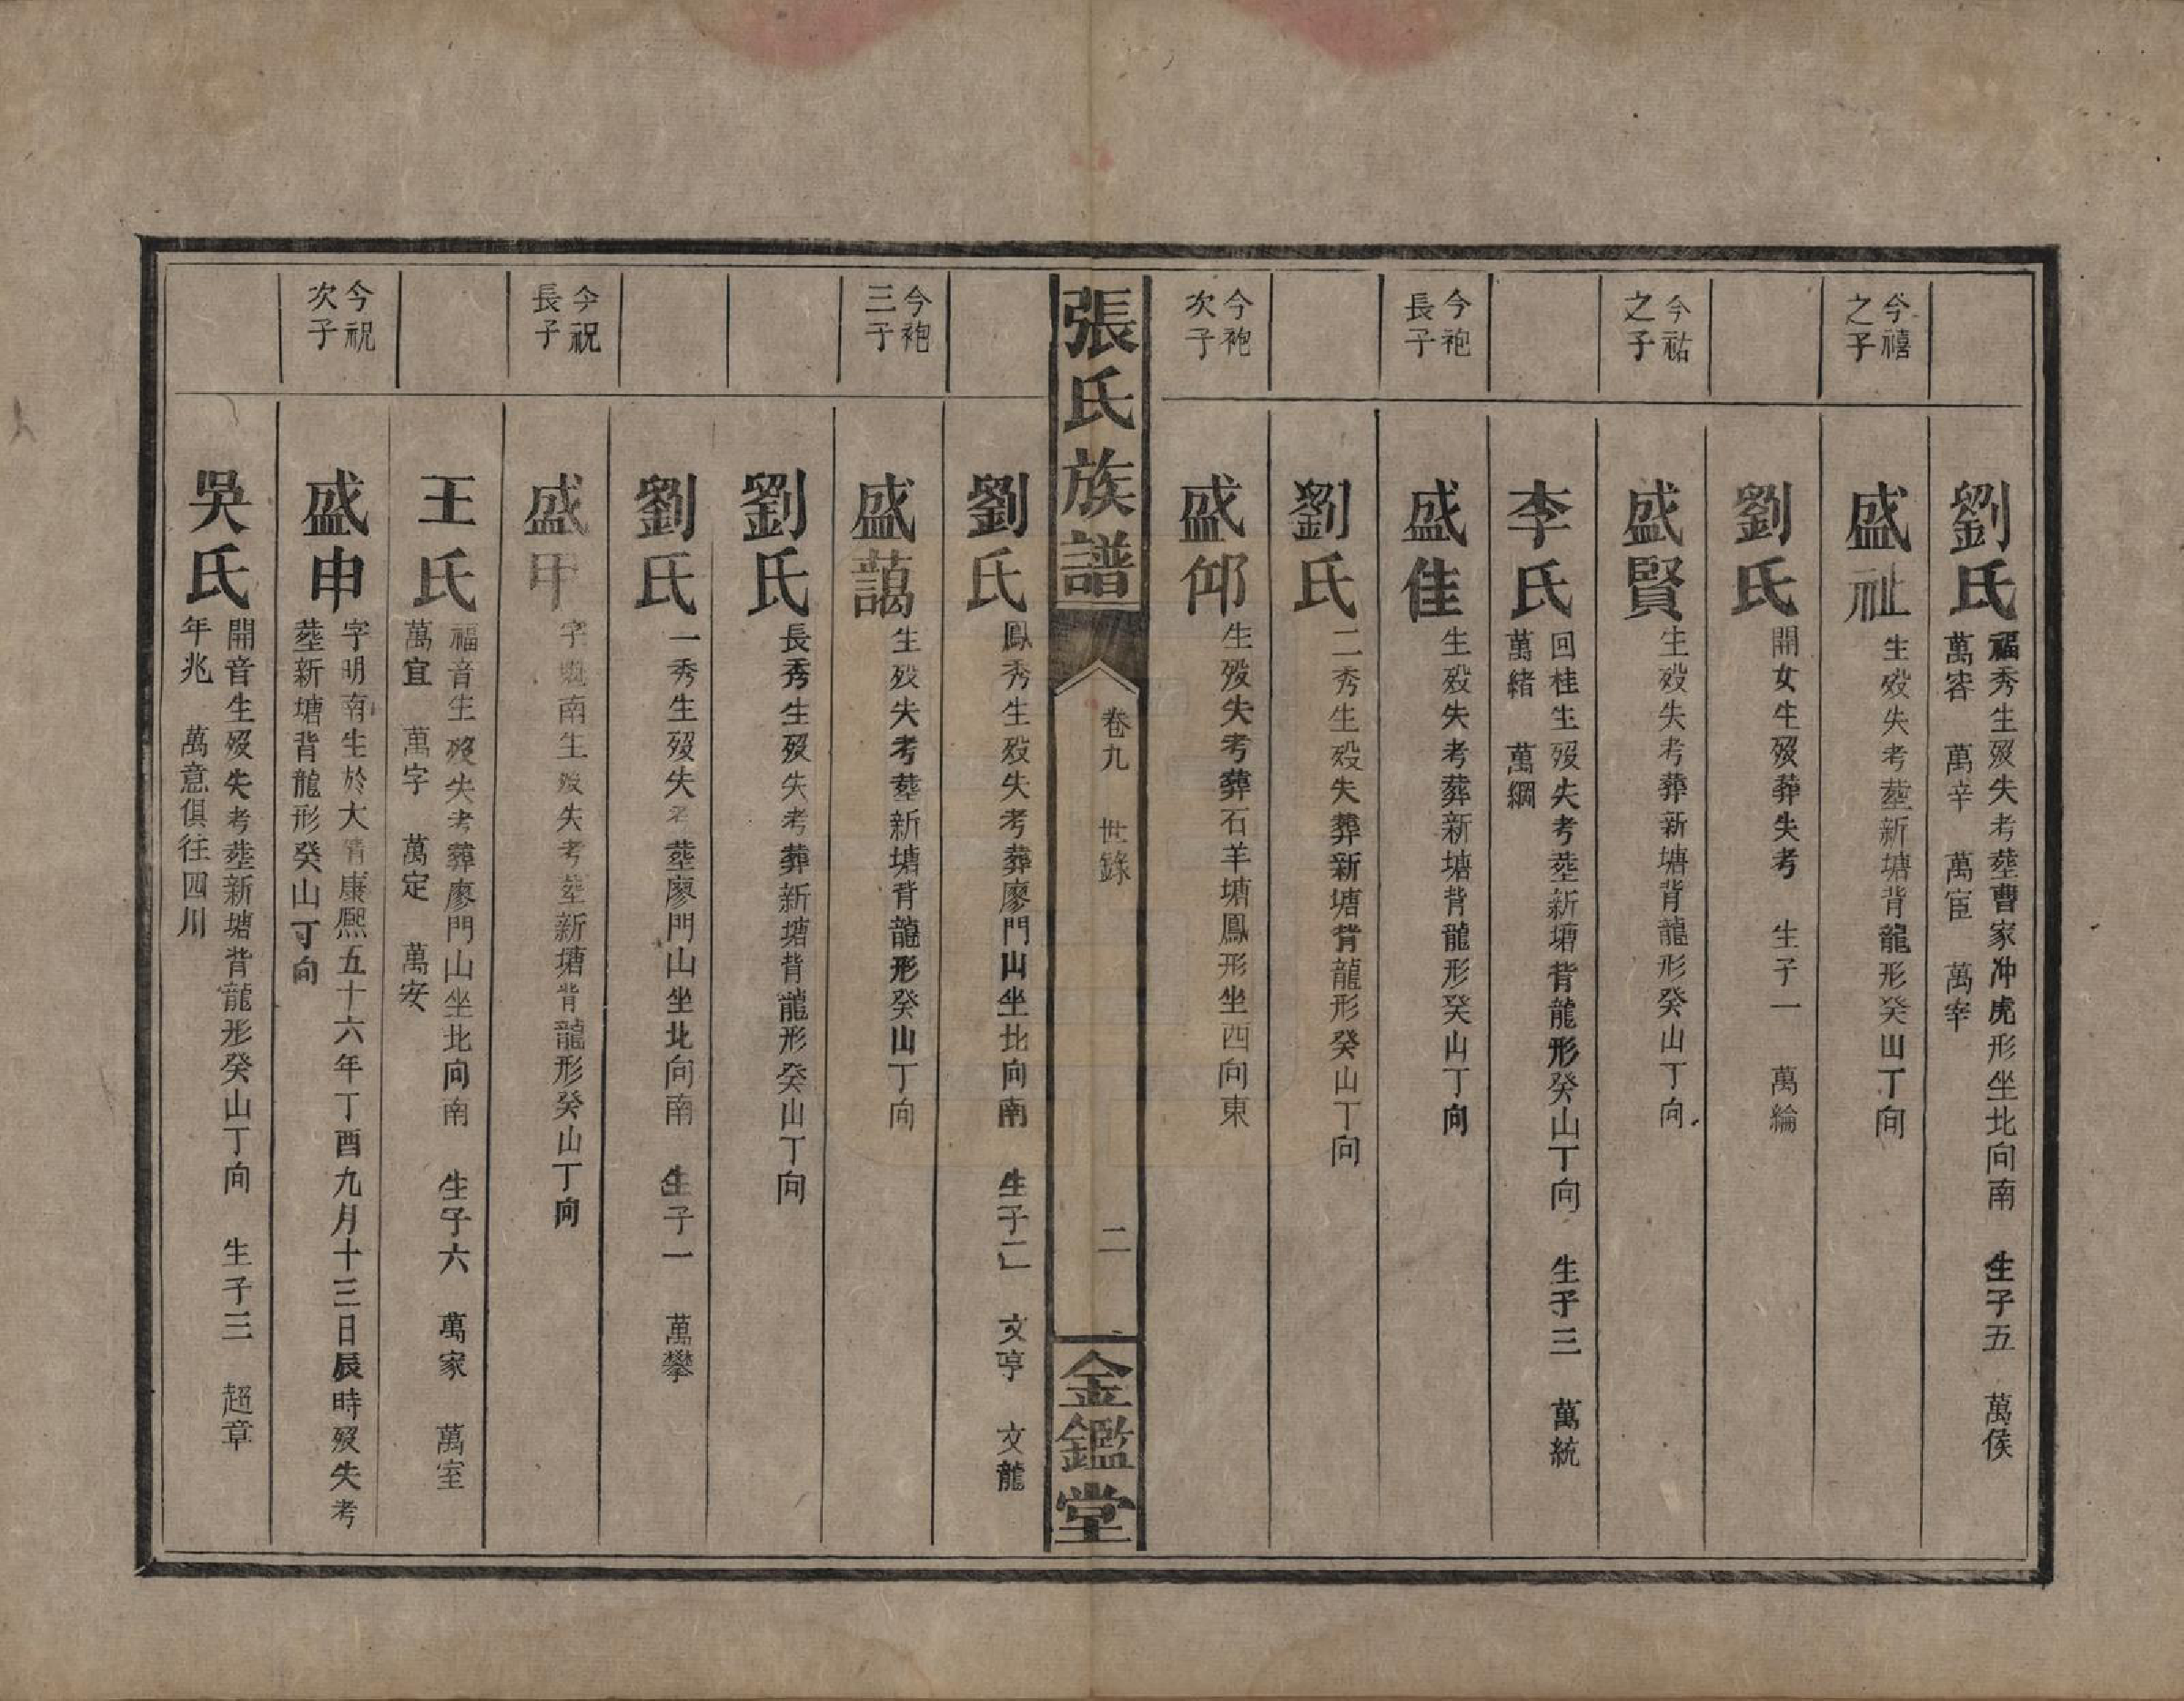 劉氏
福秀生歿失考塟曹家冲虎形坐北向南 生子五 萬侯
萬容 萬辛 萬宦 萬宰
今禧
之子
盛祉
生歿失考塟新塘背龍形癸山丁向
劉氏
開女生歿葬失考 生子一 萬綸
今祐
之子
盛賢
生歿失考葬新塘背龍形癸山丁向
李氏
回桂生歿失考塟新塘背龍形癸山丁向 生子三 萬統
萬緒 萬綱
今袍
長子
盛佳
生歿失考葬新塘背龍形癸山丁向
劉氏
二秀生歿失葬新塘背龍形癸山丁向
今袍
次子
盛仰
生歿失考葬石羊塘鳳形坐西向東
張氏族譜
卷九 世錄
二
金鑑堂
劉氏
鳳秀生歿失考葬廖門山坐北向南 生子二 文亨 文龍
今袍
三子
盛藹
生歿失考塟新塘背龍形癸山丁向
劉氏
長秀生歿失考葬新塘背龍形癸山丁向
劉氏
一秀生歿失考塟廖門山坐北向南 生子一 萬攀
今祝
長子
盛甲
字 南生歿失考塟新塘背龍形癸山丁向
王氏
福音生歿失考葬廖門山坐北向南 生子六 萬家 萬室
萬宜 萬字 萬定 萬安
今祝
次子
盛申
字明南生於大清康熙五十六年丁酉九月十三日辰時歿失考
塟新塘背龍形癸山丁向
吳氏
開音生歿失考塟新塘背龍形癸山丁向 生子三 超章
年兆 萬意俱往四川